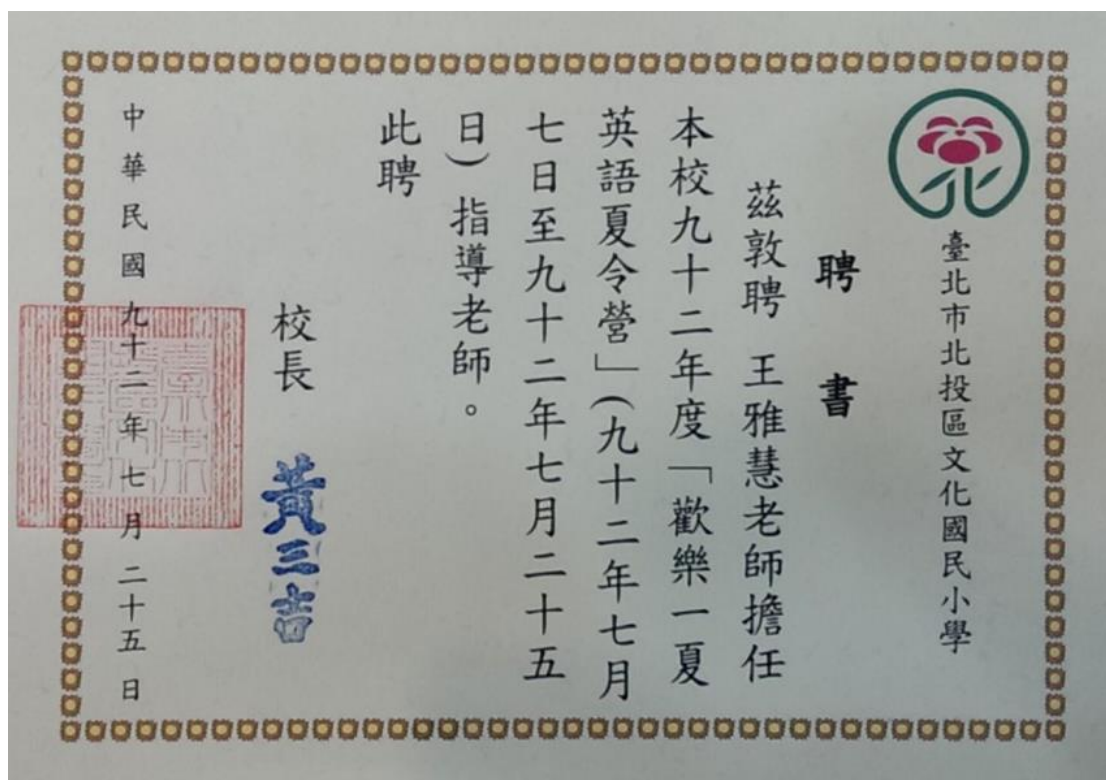 臺北市北投區文化國民小學
聘書
茲敦聘 王雅慧老師擔任
本校九十二年度「歡樂一夏
英語夏令營」(九十二年七月
七日至九十二年七月二十五
日)指導老師。
此聘
校長 黃三吉
中華民國九十二年七月二十五日